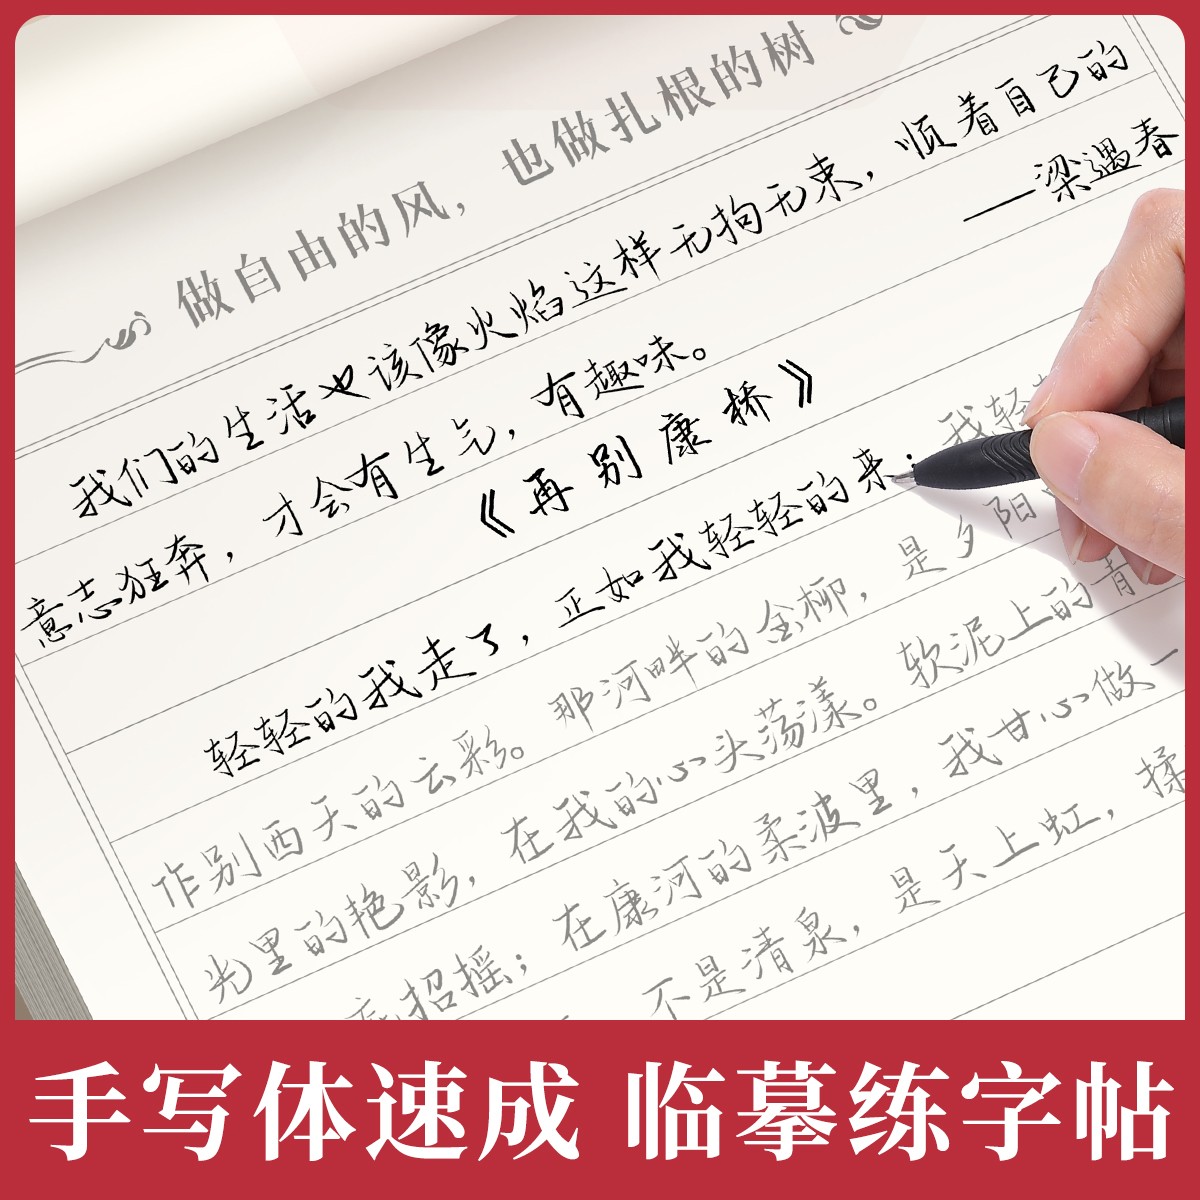 做自由的风，也做扎根的树
我们的生活也该像火焰这样无拘无束，顺着自己的
意志狂奔，才会有生气，有趣味。
——梁遇春
《再别康桥》
轻轻的我走了，正如我轻轻的来；我轻
作别西天的云彩。那河畔的金柳，是夕阳
光里的艳影，在我的心头荡漾。软泥上的青
招摇；在康河的柔波里，我甘心做一
不是清泉，是天上虹，揉
手写体速成 临摹练字帖